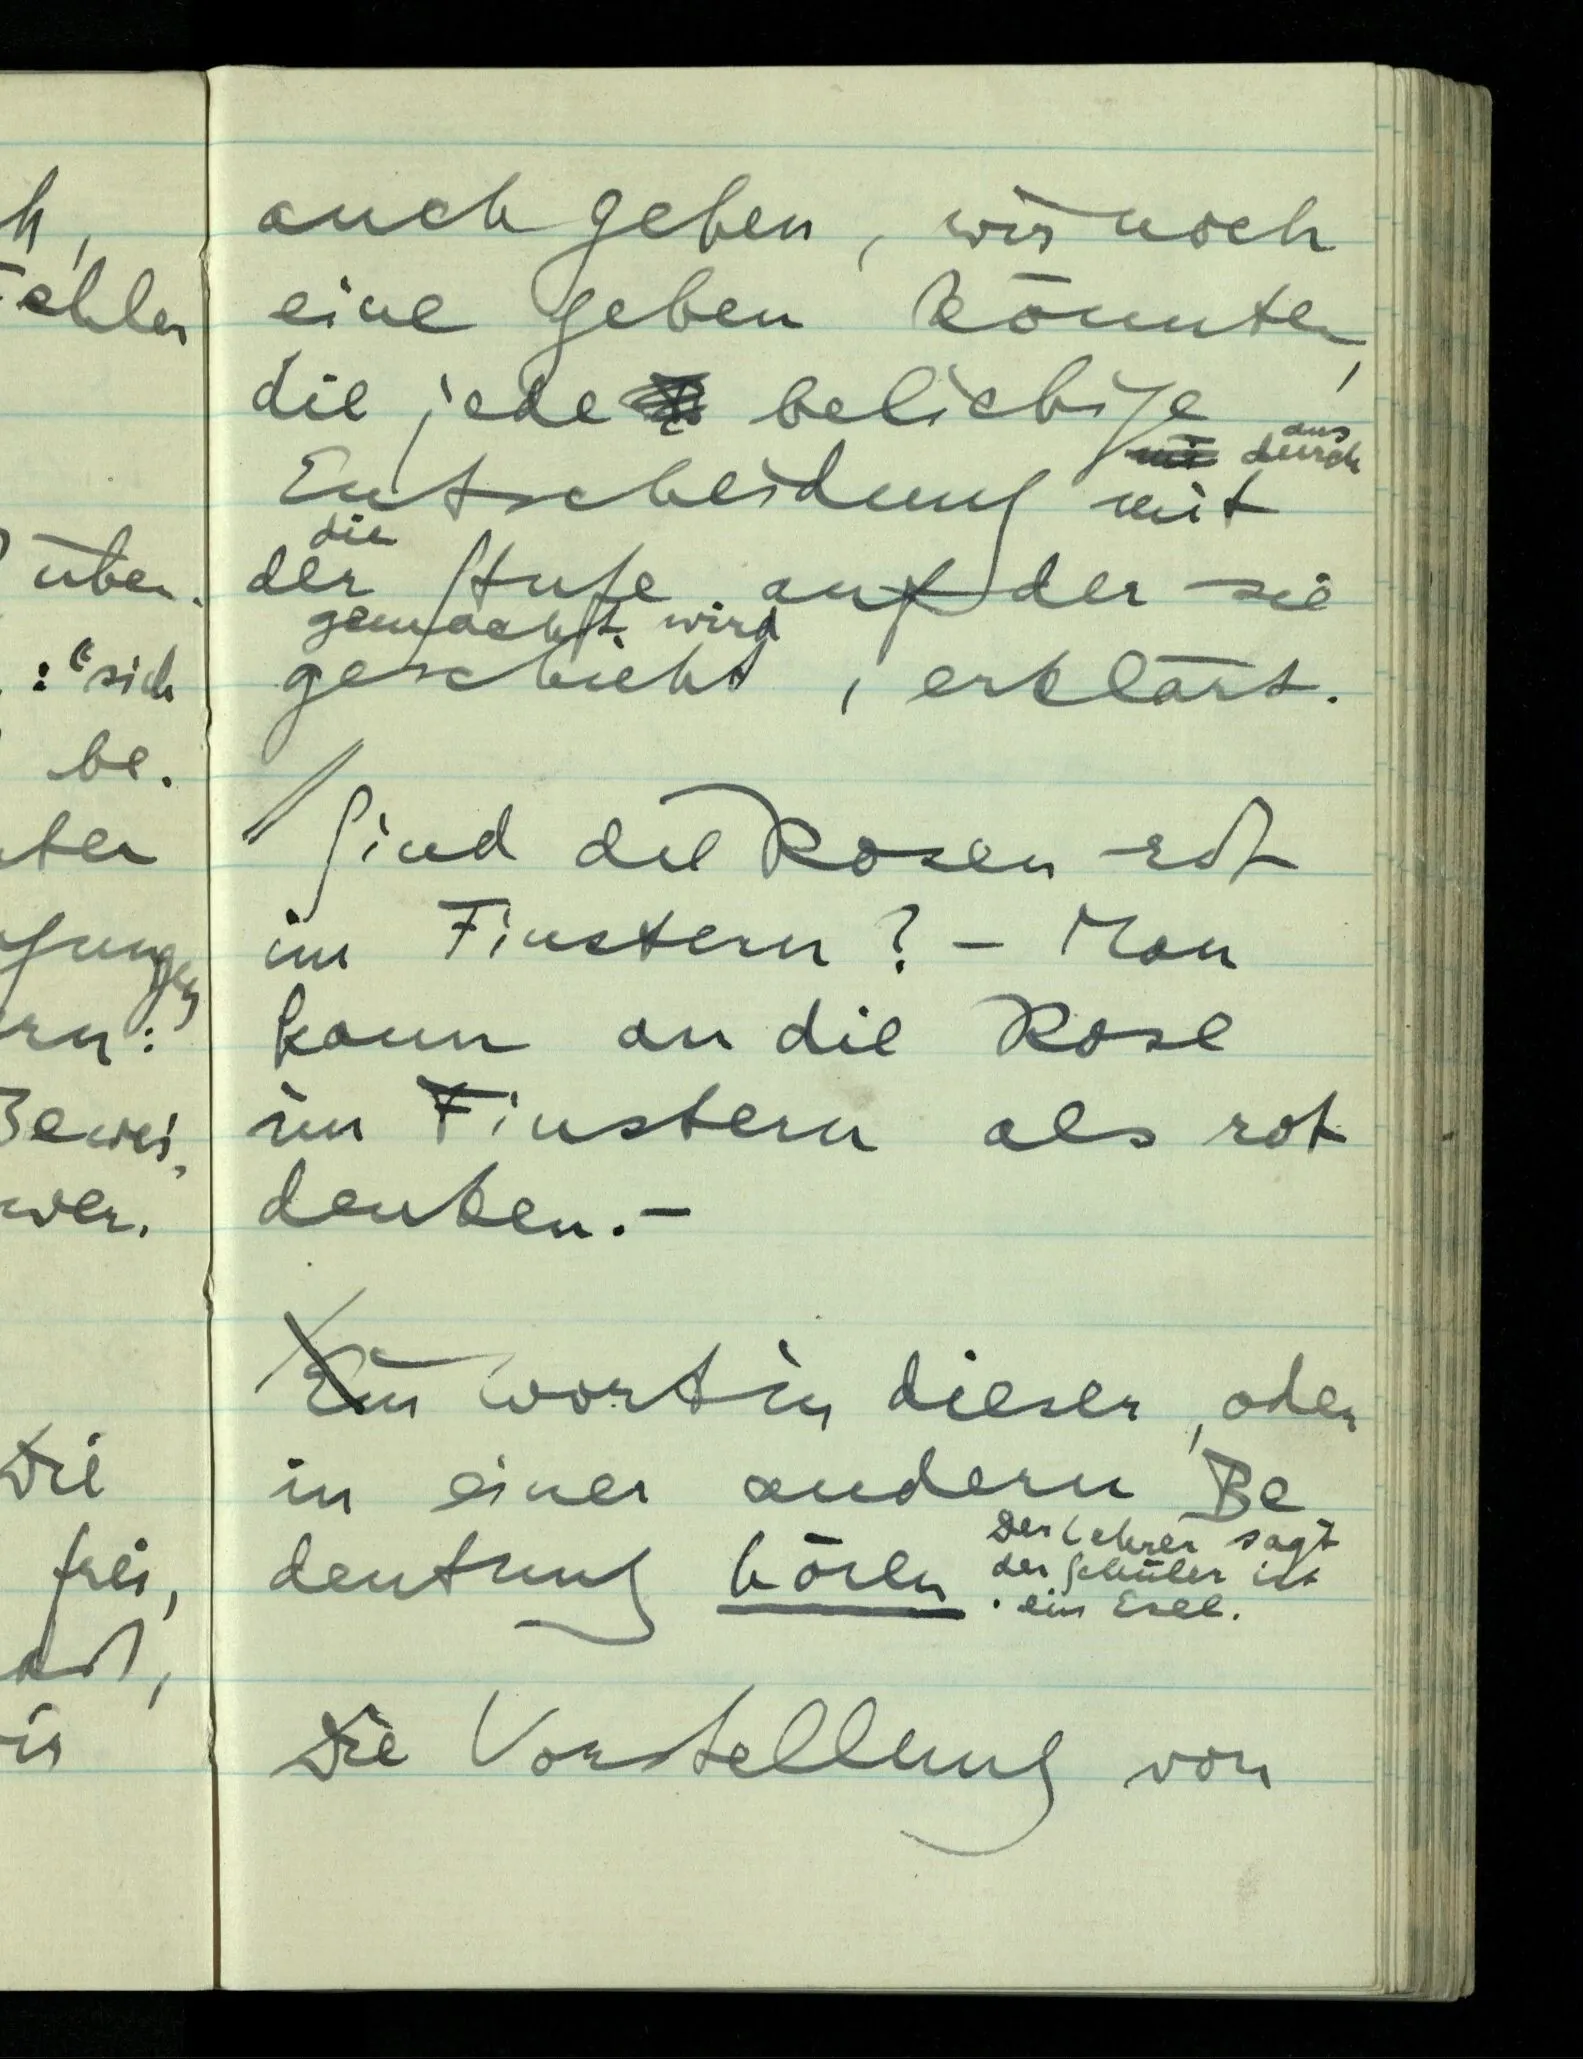 h,
ehler
über.
: "sich
be.
ter
fungen
rn:
Bewei,
wer.
Die
frei,
ir
auch geben, wir noch
eine geben könnten,
die jede beliebige
aus
durch
Entscheidung mit
die
der Stufe auf der sie
gemacht wird
geschieht, erklärt.
// Sind die Rosen rot
im Finstern? – Man
kann an die Rose
im Finstern als rot
denken. –
Ein Wort in dieser, oder
in einer andern Be
deutung hören.
Der Lehrer sagt
der Schüler ist
ein Esel.
Die Vorstellung von